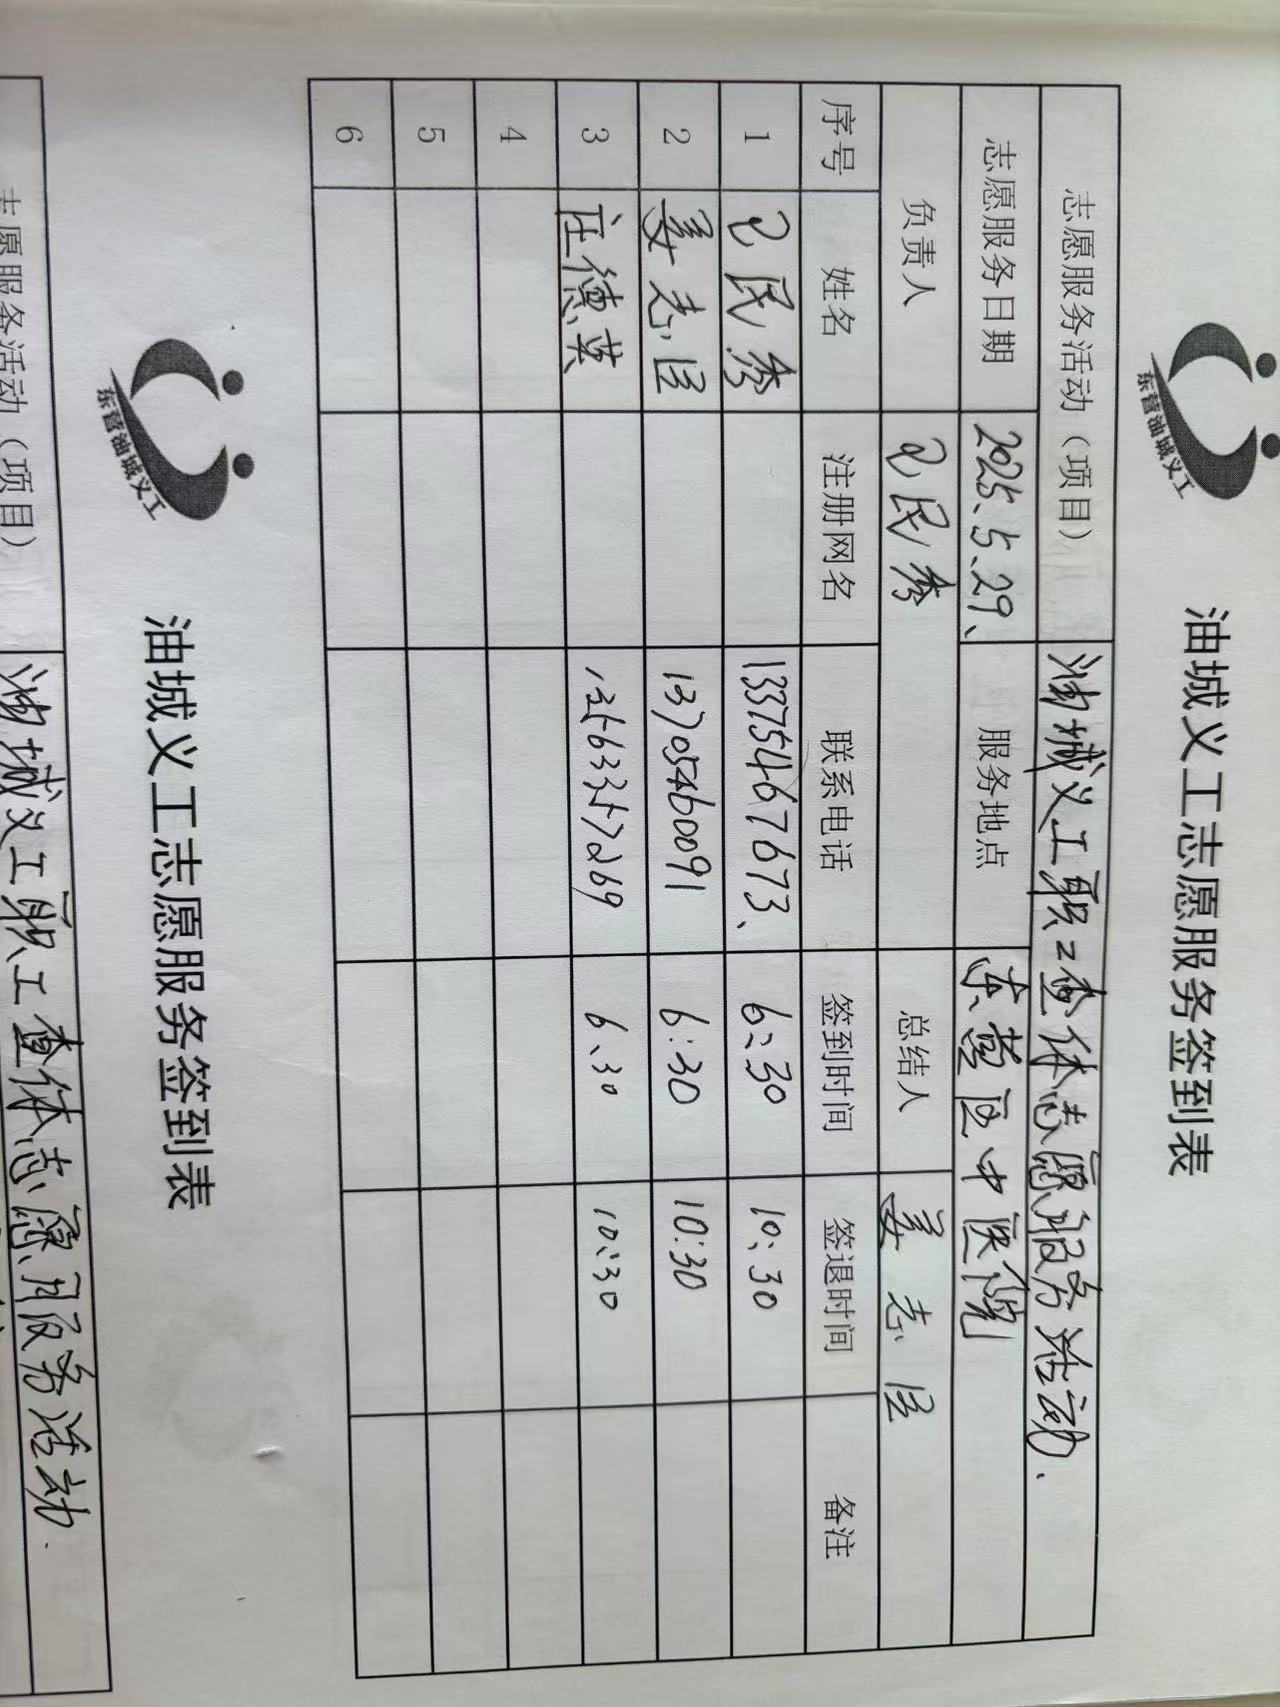 东营油城义工
油城义工志愿服务签到表
志愿服务活动（项目） 油城义工职工查体志愿服务活动.
志愿服务日期 2025、5、29、 服务地点 东营区中医院
负责人 民秀 总结人 姜志
序号 姓名 注册网名 联系电话 签到时间 签退时间 备注
1 民秀 13375467673、 6:30 10:30
2 姜志 13705460091 6:30 10:30
3 德英 6:30 10:30
4
5
6
东营油城义工
油城义工志愿服务签到表
志愿服务活动（项目） 油城义工职工查体志愿服务活动.